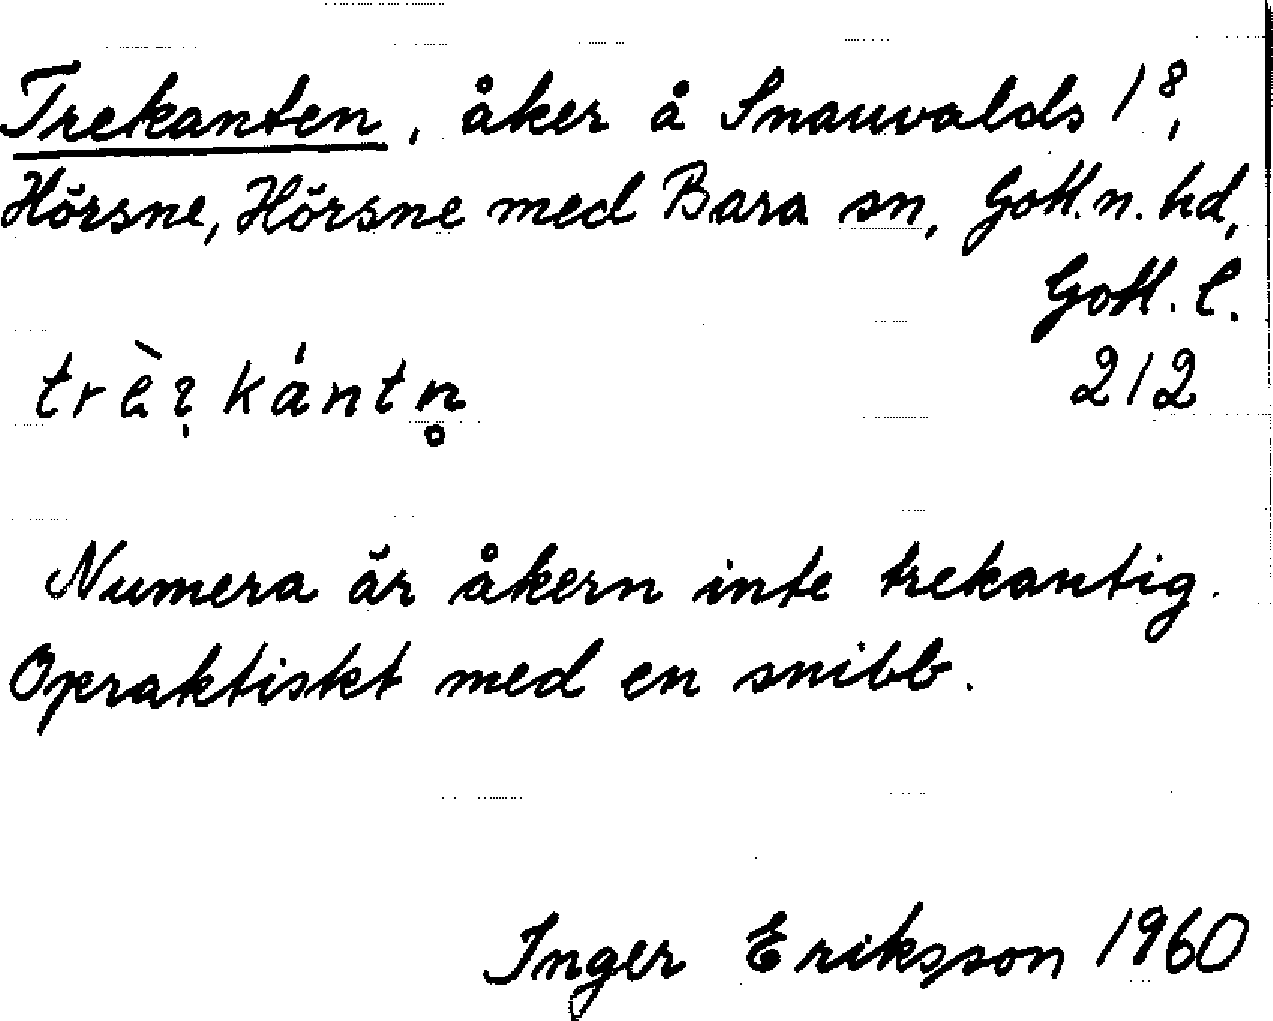 Trekanten, åker å Snauvalds 1⁸,
Hörsne, Hörsne med Bara sn, Gotl. n. hd,
Gotl. l.
212
Numera är åkern inte trekantig.
Opraktiskt med en snibb.
Inger Eriksson 1960